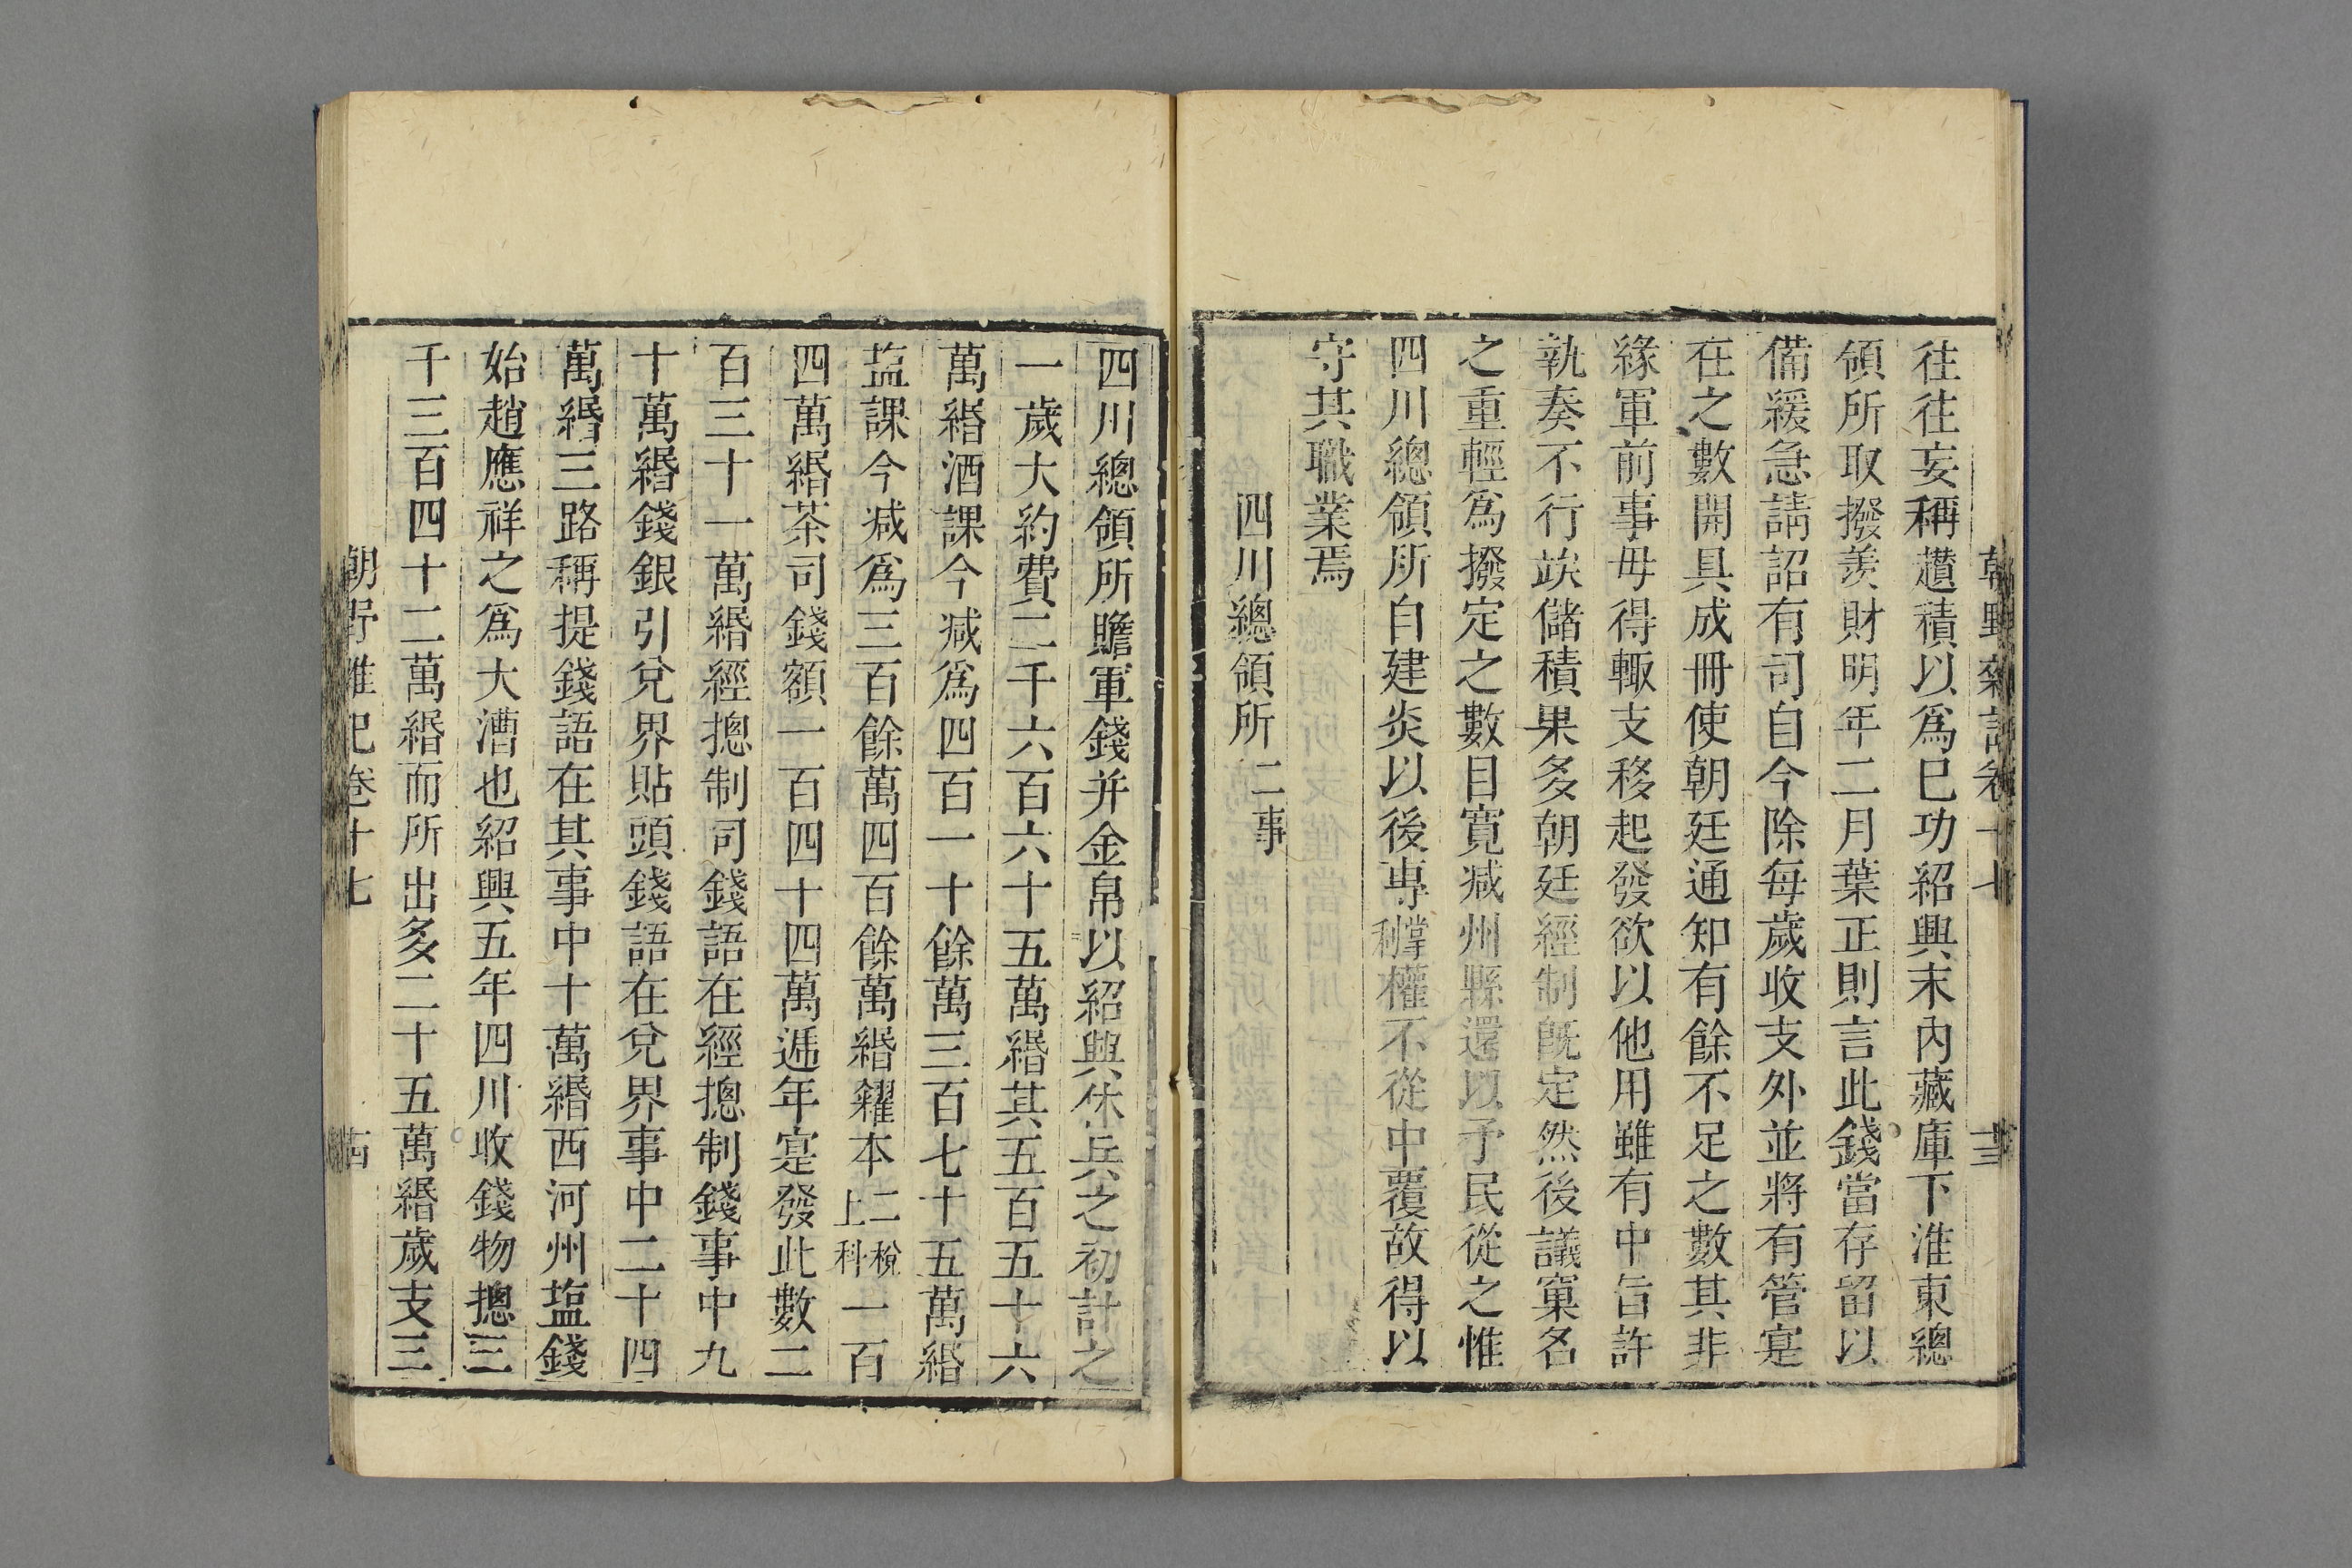 朝野雜記卷十七 十三
往往妄稱趲積以爲已功紹興末內藏庫下淮東總
領所取撥羨財明年二月葉正則言此錢當存留以
備緩急請詔有司自今除每歲收支外並將有管寔
在之數開具成冊使朝廷通知有餘不足之數其非
緣軍前事毋得輙支移起發欲以他用雖有中旨許
執奏不行竢儲積果多朝廷經制旣定然後議窠名
之重輕爲撥定之數目寛减州縣還以予民從之惟
四川總領所自建炎以後専掌利權不從中覆故得以
守其職業焉
四川總領所二事
四川總領所贍軍錢并金帛以紹興休兵之初計之
一歲大約費二千六百六十五萬緡其五百五十六
萬緡酒課今减爲四百一十餘萬三百七十五萬緡
塩課今减爲三百餘萬四百餘萬緡糴本二稅上科一百
四萬緡茶司錢額一百四十四萬逓年寔發此數二
百三十一萬緡經摠制司錢語在經摠制錢事中九
十萬緡錢銀引兌界貼頭錢語在兌界事中二十四
萬緡三路稱提錢語在其事中十萬緡西河州塩錢
始趙應祥之爲大漕也紹興五年四川收錢物摠三
千三百四十二萬緡而所出多二十五萬緡歲支三
朝野雜記卷十七 十四